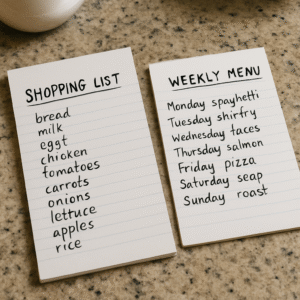 SHOPPING LIST
bread
milk
eggt
chicken
tomatoes
carrots
onions
lettuce
apples
rice
WEEKLY MENU
Monday spaghetti
Tuesday shirfry
Wednesday faces
Thursday salmon
Friday pizza
Saturday seap
Sunday roast